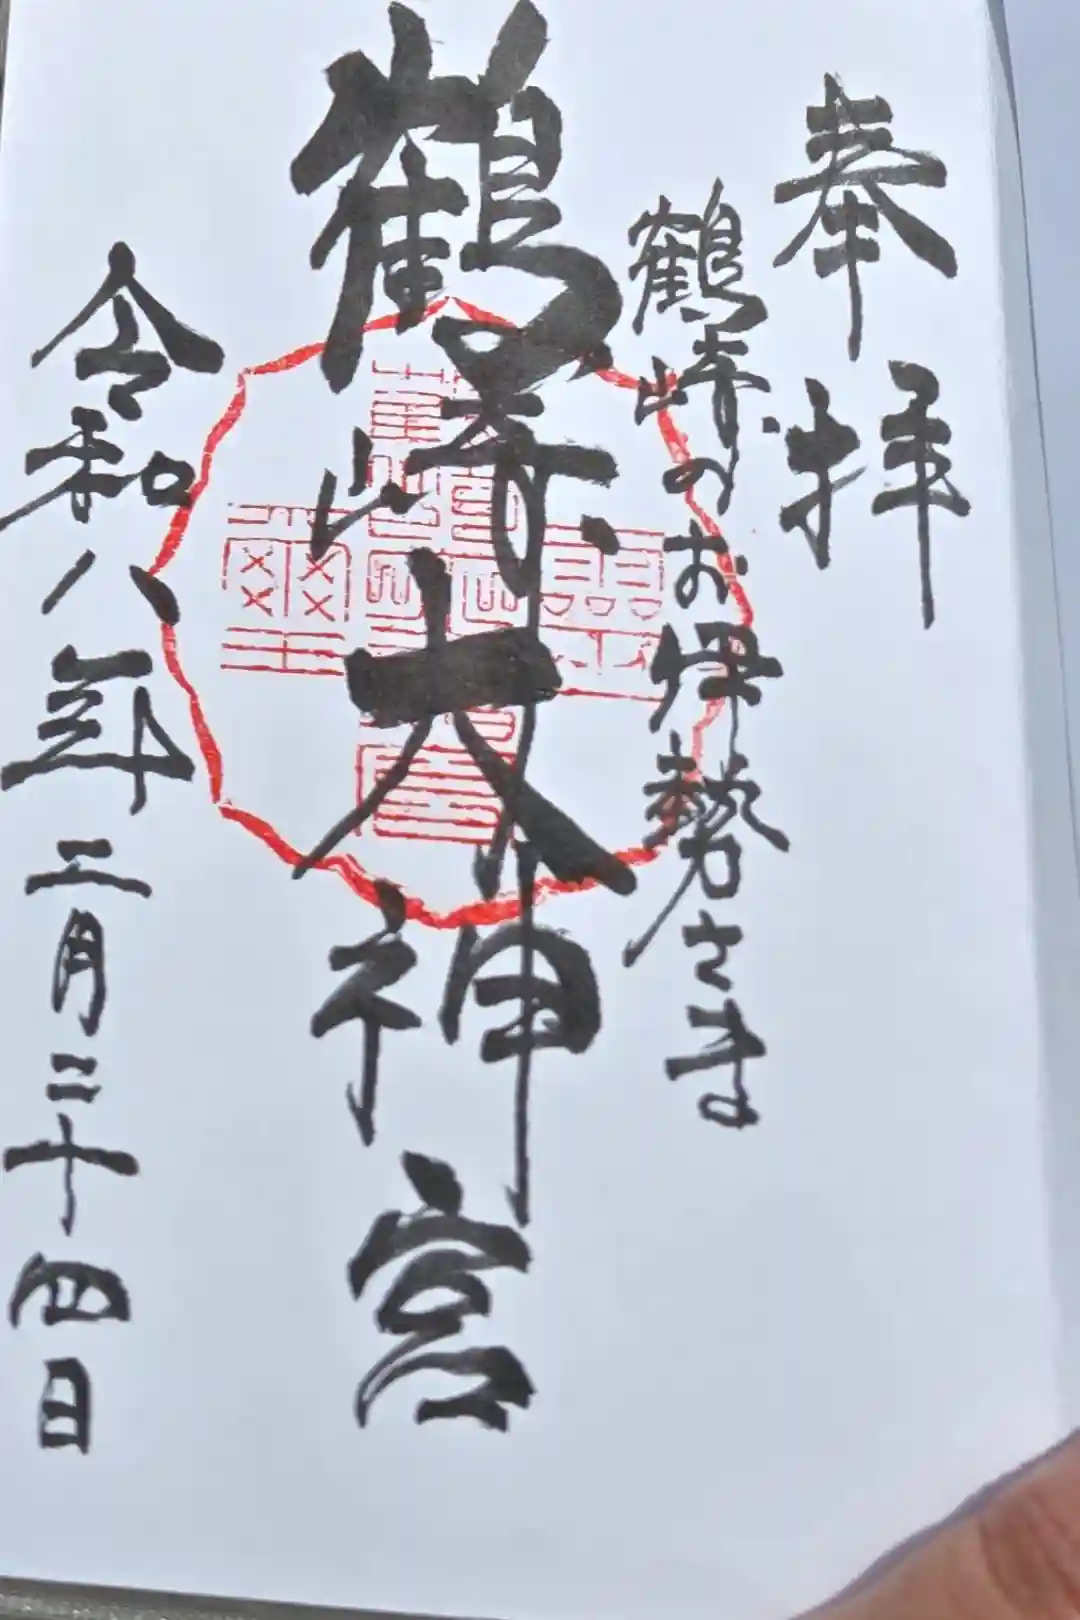 奉拝
鶴峠のお伊勢さま
鶴峠大神宮
令和八年二月二十四日